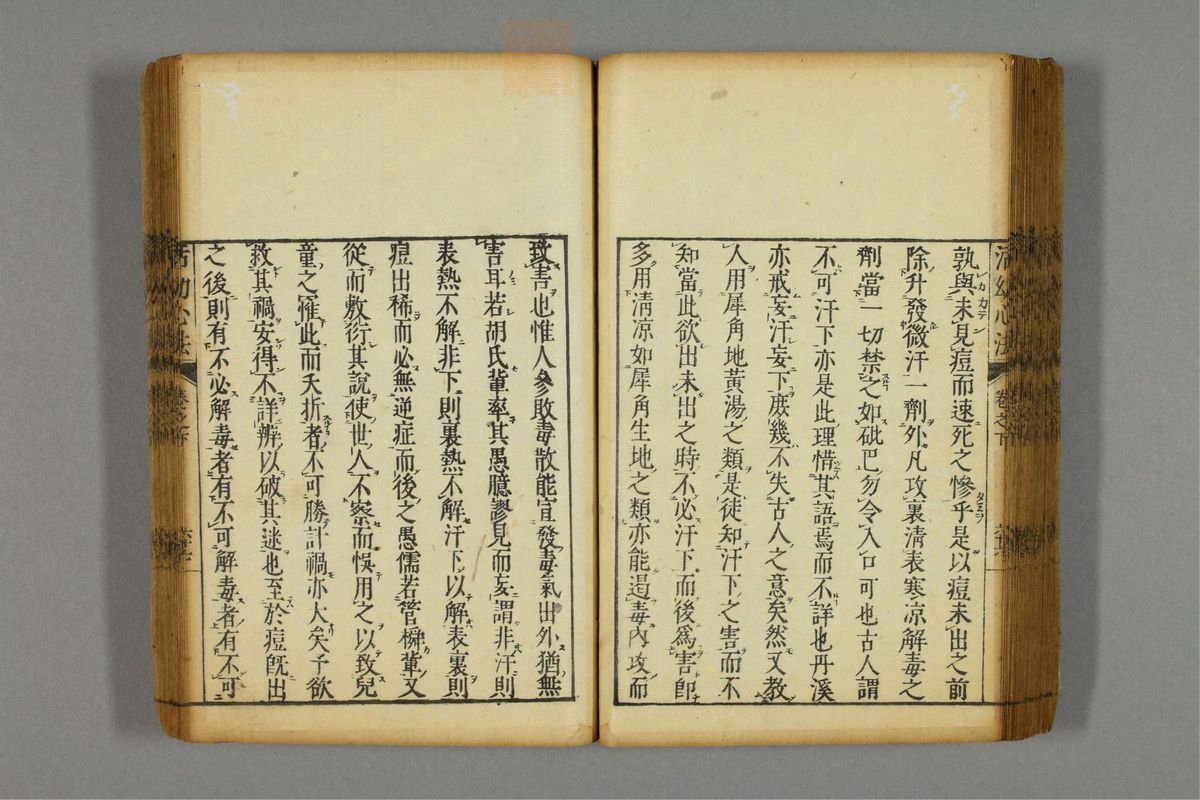 孰與未見痘而速死之慘乎是以痘未出之前
除升發微汗一劑外凡攻裏清表寒凉解毒之
劑當一切禁之如砒巴勿令入口可也古人謂
不可汗下亦是此理惜其語焉而不詳也丹溪
亦戒妄汗妄下庶幾不失古人之意矣然又教
人用犀角地黃湯之類是徒知汗下之害而不
知當此欲出未出之時不必汗下而後爲害卽
多用清凉如犀角生地之類亦能遏毒內攻而
致害也惟人參敗毒散能宣發毒氣出外猶無
害耳若胡氏輩率其愚臆謬見而妄謂非汗則
表熱不解非下則裏熱不解汗下以解表裏則
痘出稀而必無逆症而後之愚儒若管櫲輩又
從而敷衍其說使世人不察而悞用之以致兒
童之罹此而夭折者不可勝計禍亦大矣予欲
救其禍安得不詳辨以破其迷也至於痘旣出
之後則有不必解毒者有不可解毒者有不可
活幼心法
卷之下